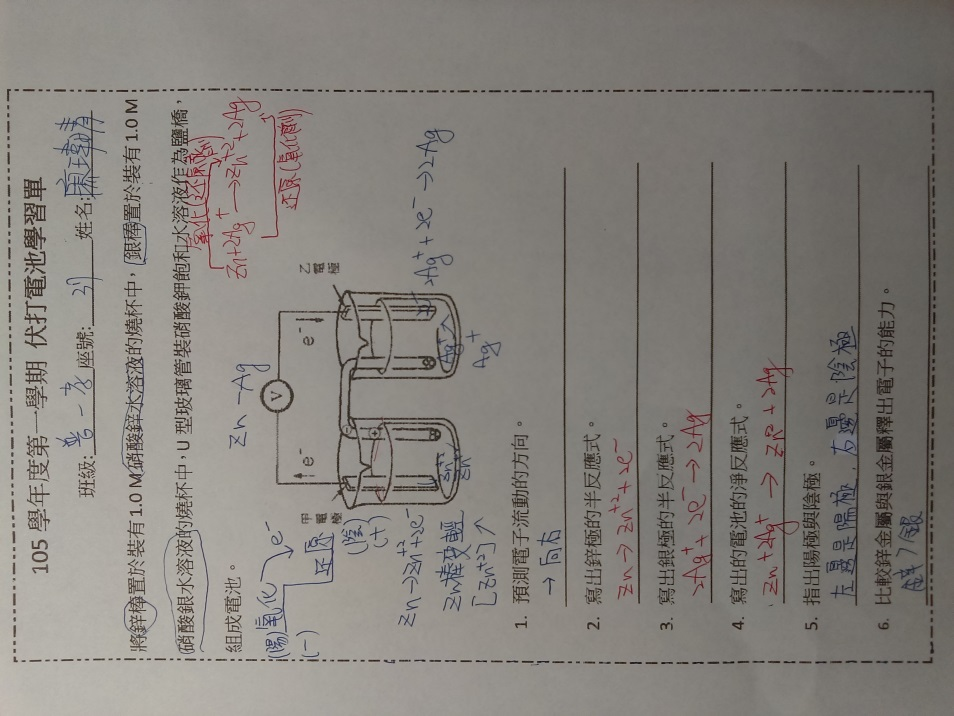 105 學年度第一學期 伏打電池學習單
班級: 普一孝 座號: 37 姓名:
將鋅棒置於裝有 1.0 M 硝酸鋅水溶液的燒杯中，銀棒置於裝有 1.0 M
硝酸銀水溶液的燒杯中，U 型玻璃管裝硝酸鉀飽和水溶液作為鹽橋，
組成電池。
氧化(还原劑)
Zn+2Ag⁺→Zn⁺²+2Ag
还原(氧化劑)
Zn-Ag
(陽)氧化 e⁻
(-) 还原
(陰)
(+)
甲電極
e⁻
V
e⁻
乙電極
Zn²⁺
Zn²⁺
Ag⁺
Ag⁺
Zn→Zn⁺²+2e⁻
Zn棒變輕
[Zn⁺²]↑
2Ag⁺+2e⁻→2Ag
1. 預測電子流動的方向。
→向右
2. 寫出鋅極的半反應式。
Zn→Zn⁺²+2e⁻
3. 寫出銀極的半反應式。
2Ag⁺+2e⁻→2Ag
4. 寫出的電池的淨反應式。
Zn+2Ag⁺→Zn⁺²+2Ag
5. 指出陽極與陰極。
左邊是陽極，右邊是陰極
6. 比較鋅金屬與銀金屬釋出電子的能力。
鋅>銀